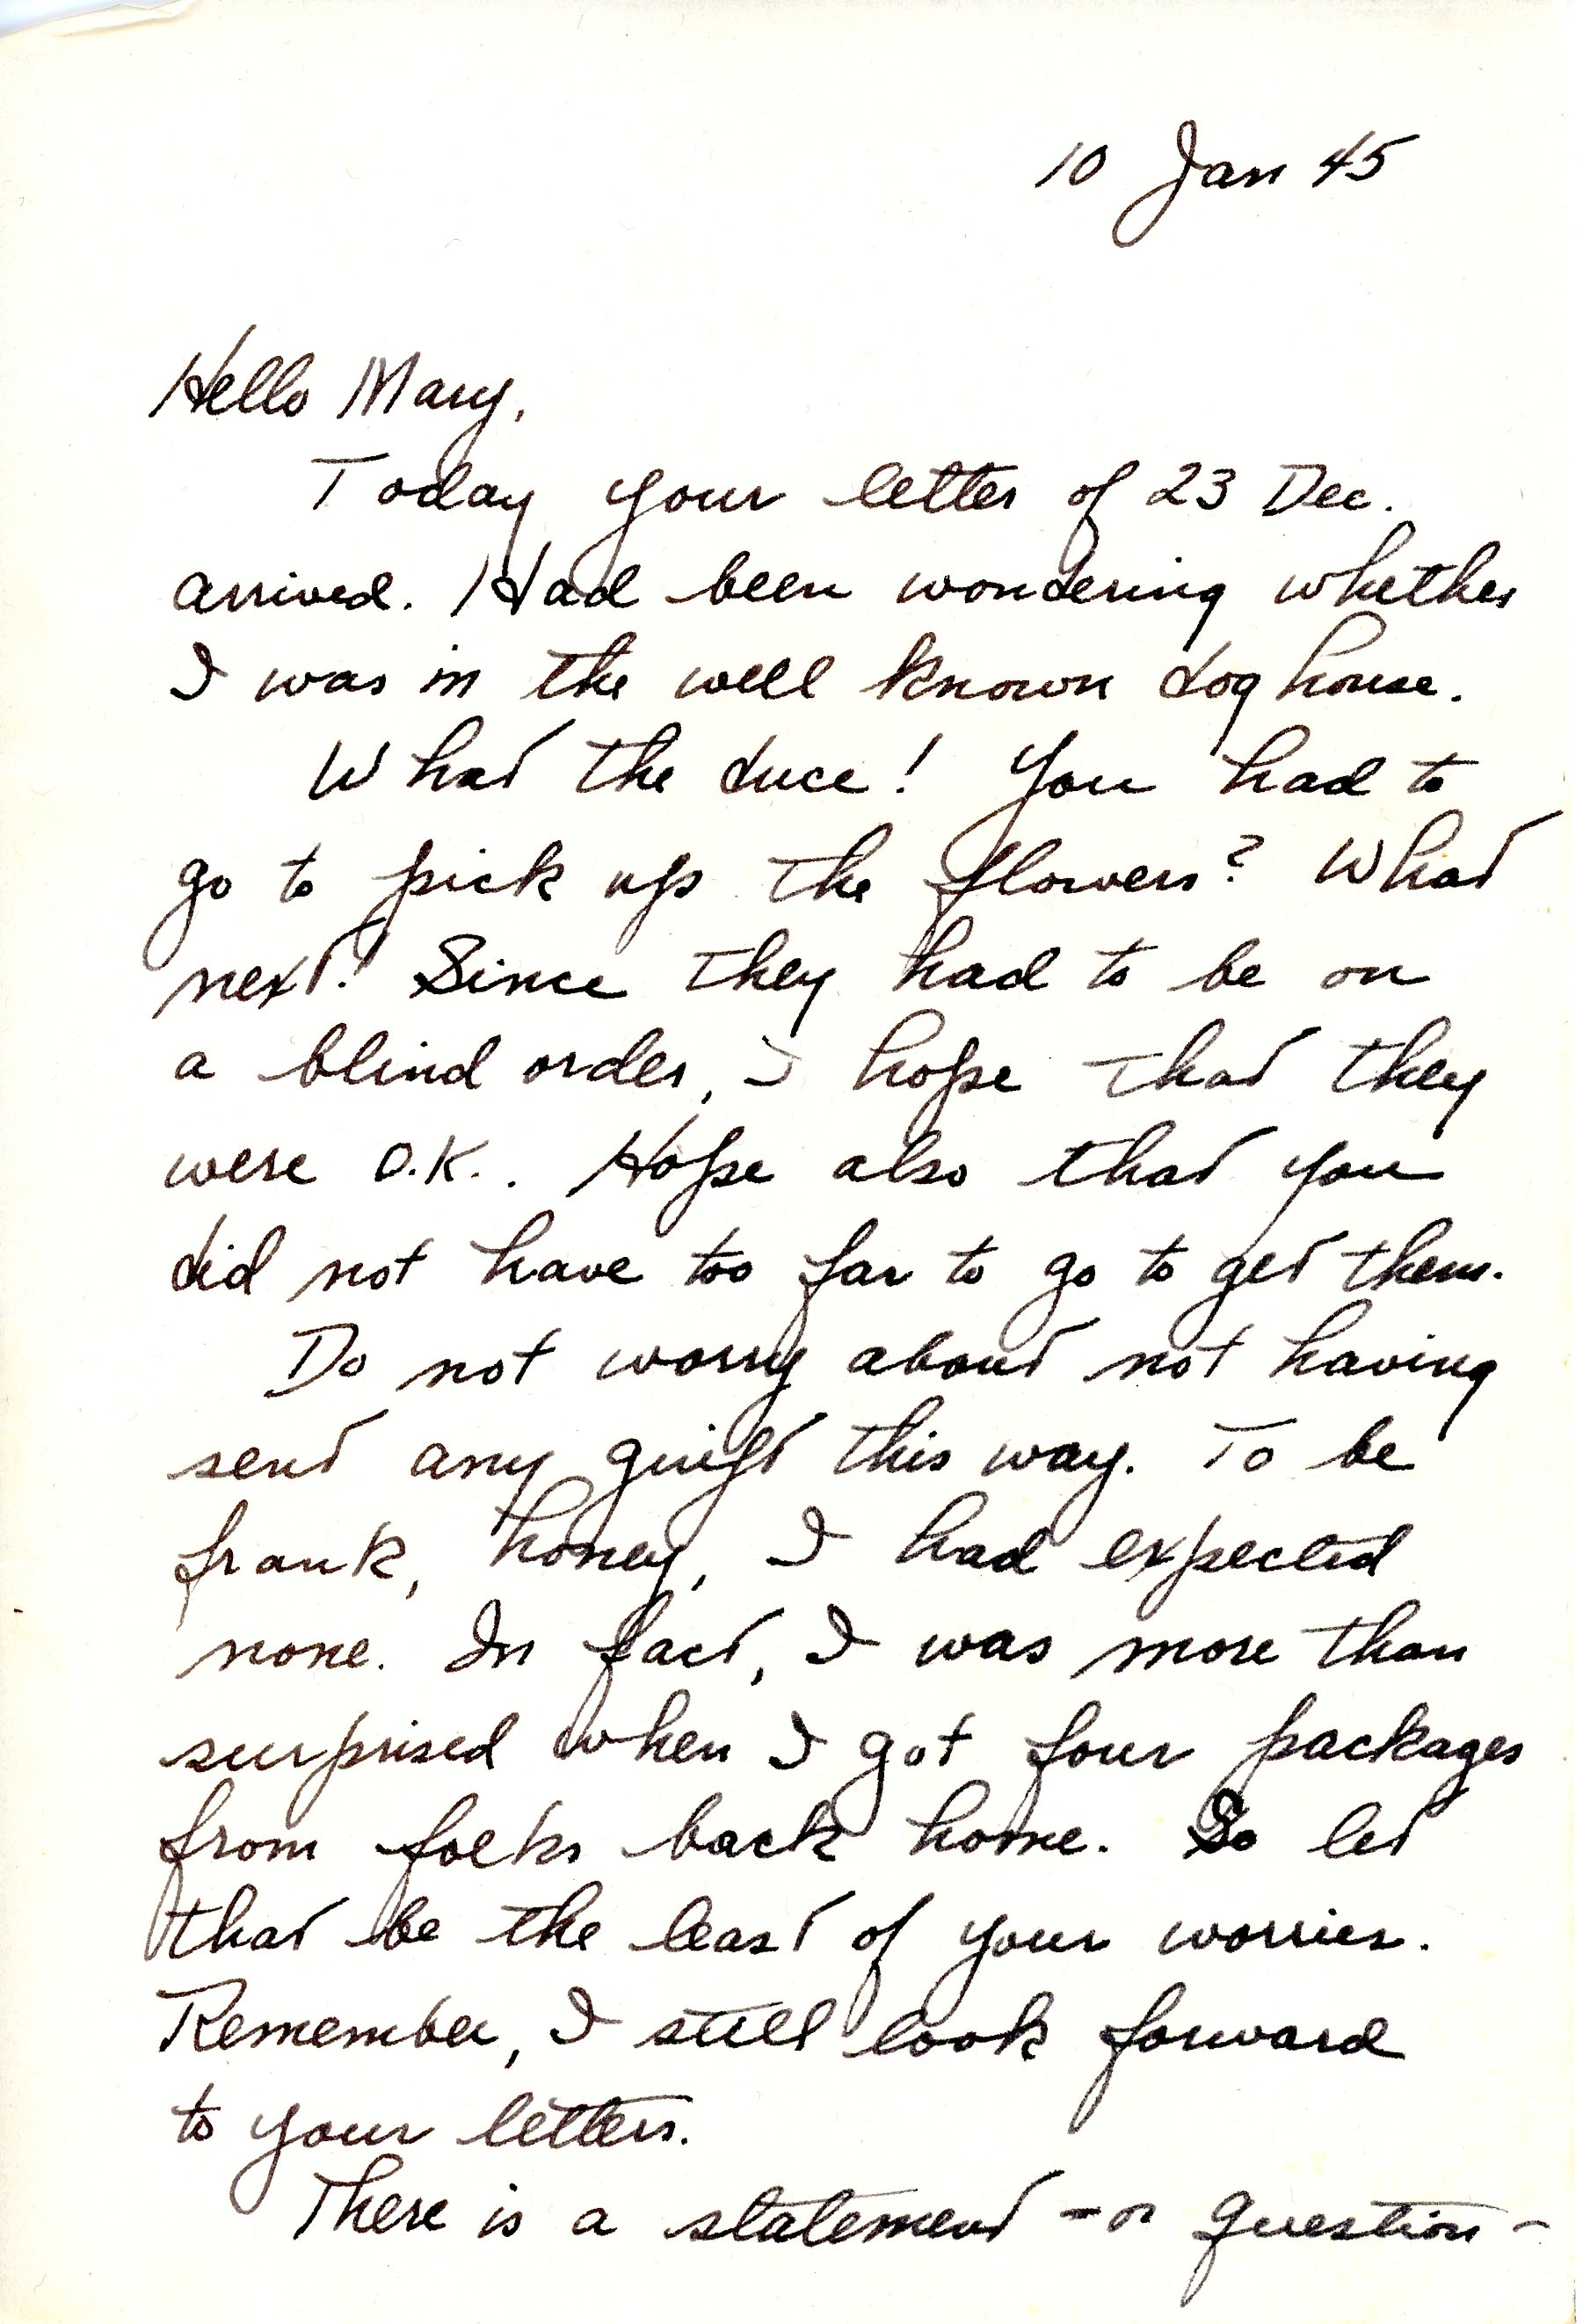 10 Jan 45
Hello Mary,
Today your letter of 23 Dec.
arrived. Had been wondering whether
I was in the well known dog house.
What the duce! You had to
go to pick up the flowers? What
next! Since they had to be on
a blind order, I hope that they
were O.K.. Hope also that you
did not have too far to go to get them.
Do not worry about not having
sent any guift this way. To be
frank, honey, I had expected
none. In fact, I was more than
surprised when I got four packages
from folks back home. So let
that be the least of your worries.
Remember, I still look forward
to your letters.
There is a statement - or question -